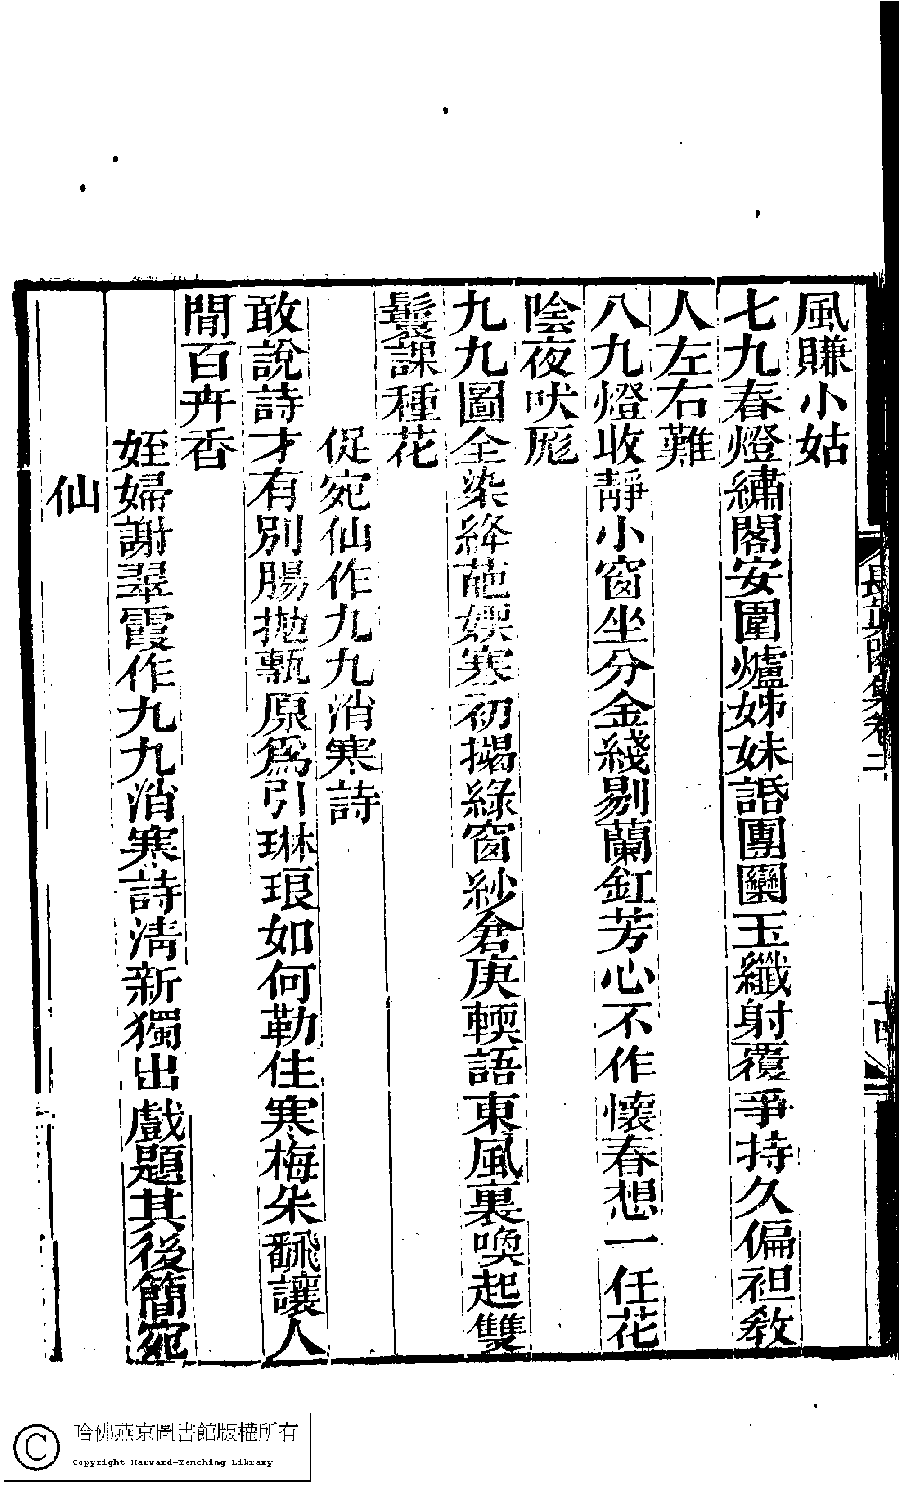 風賺小姑
七九春燈繡閣安圍爐姊妹語團圞玉纖射覆爭持久偏袒教
人左右難
八九燈收靜小窗坐分金綫剔蘭釭芳心不作懷春想一任花
陰夜吠厖
九九圖全染絳葩娛寒初揭綠窗紗倉庚輭語東風裏喚起雙
鬟課種花
促宛仙作九九消寒詩
敢說詩才有別腸拋甎原爲引琳琅如何勒住寒梅朵翻讓人
間百卉香
姪婦謝翠霞作九九消寒詩清新獨出戲題其後簡宛
仙
長真閣集卷二
十四
哈佛燕京圖書館版權所有
Copyright Harvard-Yenching Library